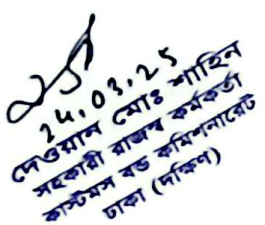 24.03.25
দেওয়ান মোঃ শাহিন
সহকারী রাজস্ব কর্মকর্তা
কাস্টমস বন্ড কমিশনারেট
ঢাকা (দক্ষিণ)